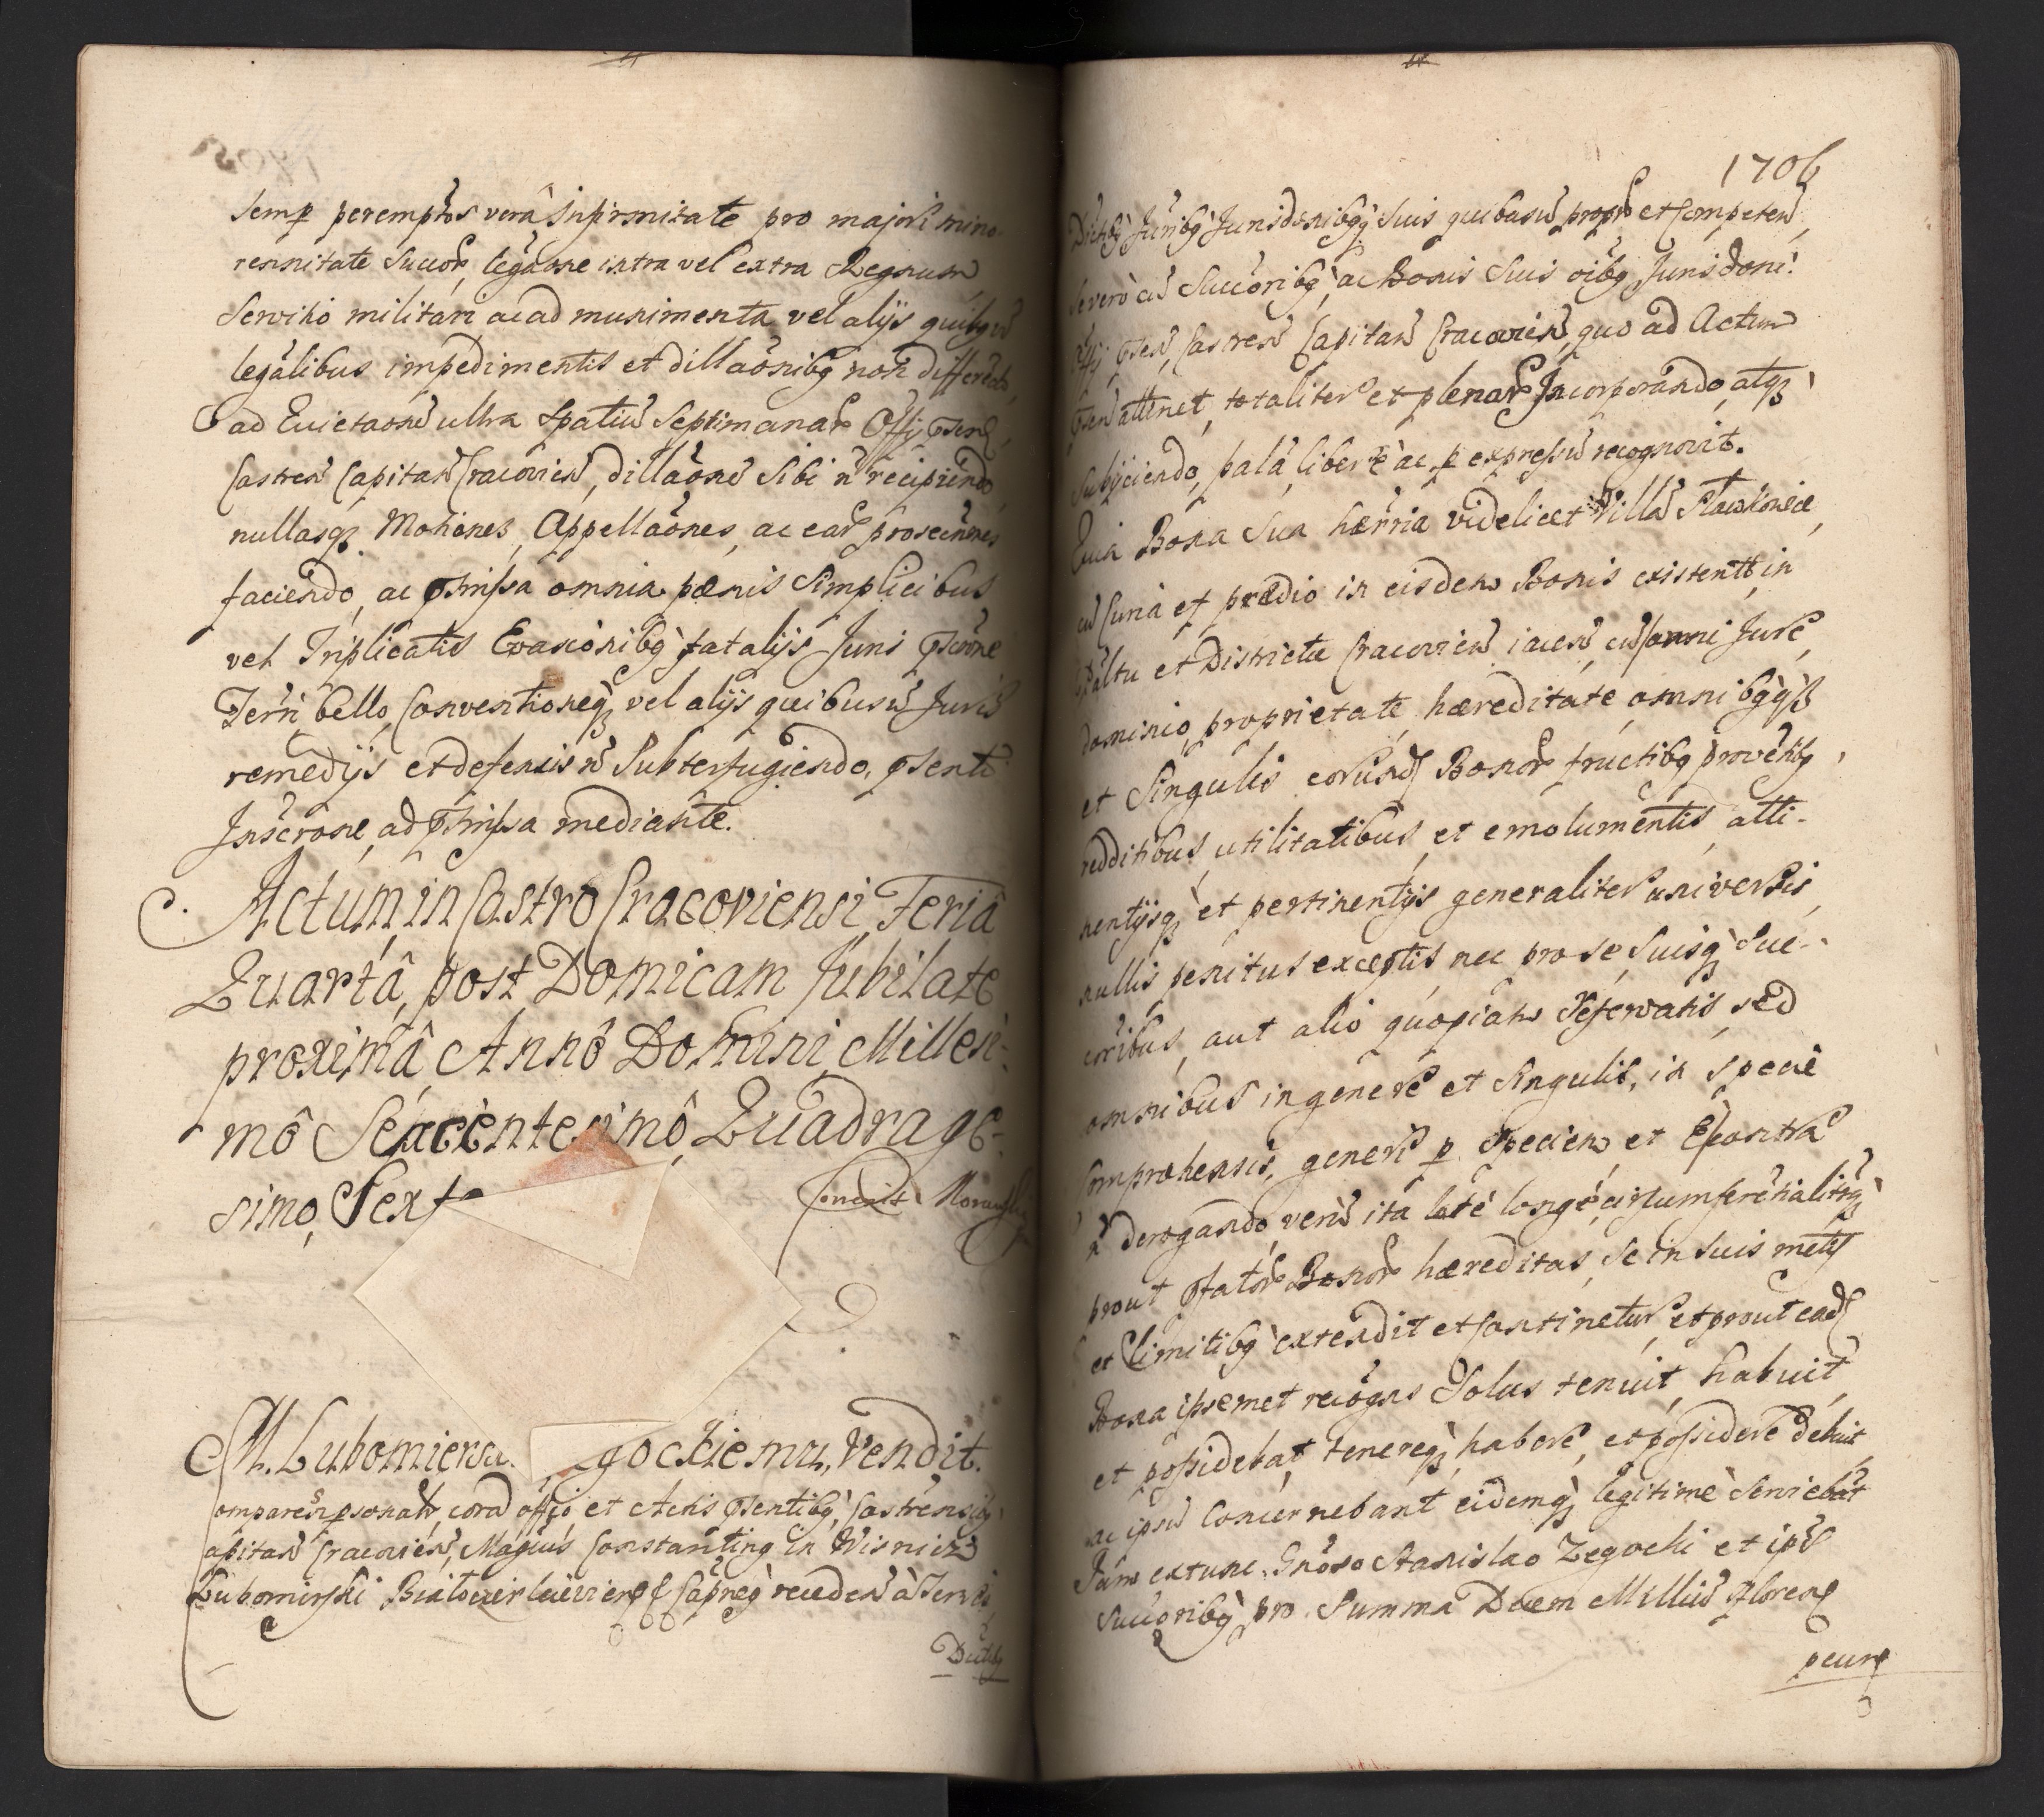 semp peremptos verâ Infirmitate pro majori mino-
rennitate Succor, legaone intra vel extra Regnum
Servitio militari ac ad munimenta vel alijs quibgvs
legalibus impedimentis et dillaonibg non differendo,
ad Evictaone ultra Spatiu Septimanar Offij psen,
Castren Capitan Cracovien, dillaone sibi n recipiendo
nullasq Motiones, Appellaones, ac ear prosecunes
faciendo, ac pmissa omnia pœnis Simplicibus
vel Triplicatis Evasionibg fatalijs Juri
Terri bello, Conventioneq vel alijs quibusu Juris
remedijs et defensis n Subterfugiendo, psenti
Inscrone ad pmissa mediante.
Actum in Castro Cracoviensi Feriâ
Quartâ, post Domicam Jubilate
proximâ Annô Domini Millesi-
mô Sexcentesimô Quadrage-
simo, Sext
M. Lubomiersci gockiemu, Vendit.
omparens psonalr, cora offjo et Actis psentibg, Castrensibg
apitan Cracovien, Magcus Constanting in Wisnicz
Lubomirski Białocerkievien Capneg receden à Terris,
Dictbg
1706
Dictbg Juribg Jurisdonibgq Suis quibusu propr et Competen,
se verò cu Succoribg, ac Bonis Suis oibg Jurisdoni
Offij psen, Castren Capitan Cracovien, quo ad Actum
psen attinet, totaliter et plenar Incorporando, atq
Subijciendo, palà, liberè ac p expressu recognovit.
Quia Bona Sua hærria videlicet Villa
cu Curia et prædio in eisdem Bonis existenti, in
Pałtu et Districtu Cracovien iacen, cu omni Jure,
dominio, proprietate, hæreditate, omnibgqq
et Singulis eorund Bonor fructibg provetibg,
redditibus, utilitatibus, et emolumentis, atti-
nentijsq et pertinentijs generaliter universis,
nullis penitus exceptis, nec pro se, Suisq Suc-
coribus, aut alio quopiam reservatis, sed
omnibus in genere et Singulis, in speciê
Comprehensis, generi p Speciem et Econtra
n derogando, veru ita latè longè, circumferetialiterq
prout pfator Bonor hæreditas, se in suis metis
et Limitibg extendit et Continetur, et prout ead
Bona ipsemet recogns Solus tenuit, habuit,
et possidebat, tenereq, habere, et possidere debuit
ac ipsu Concernebant eidemq legitimè Serviebat
Jam extunc. Gnoso Stanislao Zegocki et ips
Succoribg pro Summa Decem Milliu floren
pecun